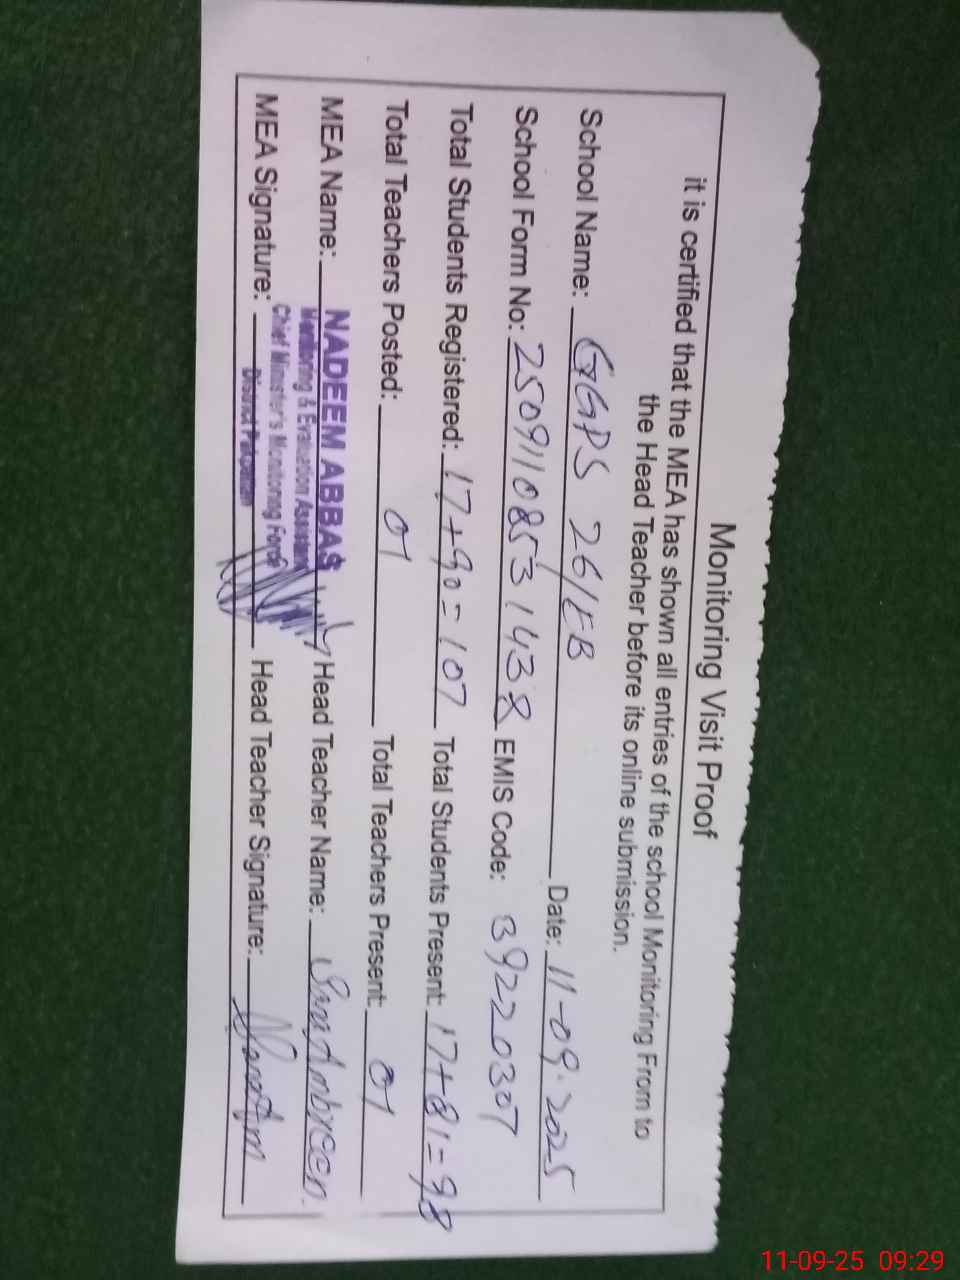 Monitoring Visit Proof
it is certified that the MEA has shown all entries of the school Monitoring From to
the Head Teacher before its online submission.
School Name: GGPS 26/EB Date: 11-09-2025
School Form No: 25091108531438 EMIS Code: 39220307
Total Students Registered: 17+90=107 Total Students Present: 17+81=98
Total Teachers Posted: 01 Total Teachers Present: 01
MEA Name: NADEEM ABBAS Head Teacher Name: Ambreen
Monitoring & Evaluation Assistant
Chief Minister's Monitoring Force
District Pakpattan
MEA Signature: Head Teacher Signature:
11-09-25 09:29